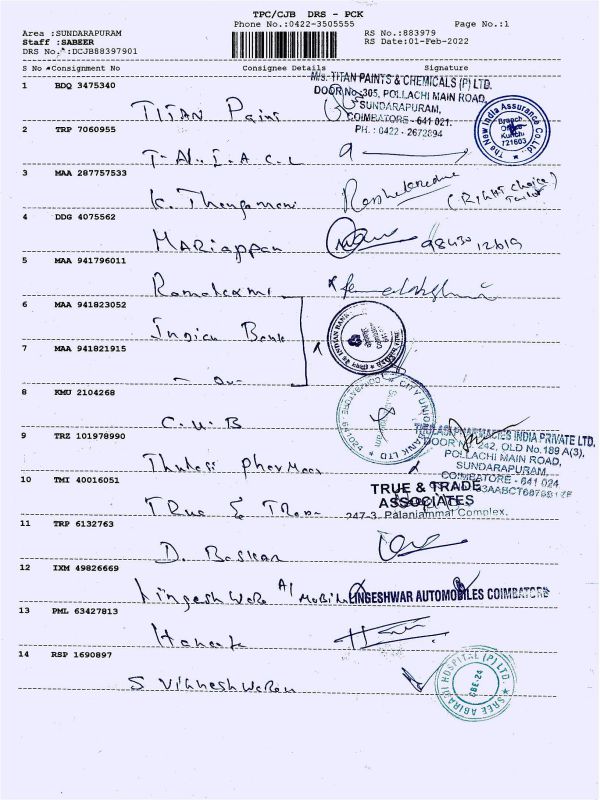 TPC/CJB DRS - PCK
Phone No.:0422-3505555 Page No.:1
Area :SUNDARAPURAM RS No.:883979
Staff :SABEER RS Date:01-Feb-2022
DRS No.^:DCJB88397901
S No #Consignment No Consignee Details Signature
1 BDQ 3475340
M/s. TITAN PAINTS & CHEMICALS (P) LTD.
DOOR No. 305, POLLACHI MAIN ROAD,
SUNDARAPURAM,
COIMBATORE - 641 021.
PH. : 0422 - 2672894
TITAN Paint
2 TRP 7060955
The New India Assurance Co.Ltd.
Branch Office
721603
T-N.I.A.C.L
3 MAA 287757533
K. Thangamani
(Right choice)
Tailor
4 DDG 4075562
MARiappan
5 MAA 941796011
6 MAA 941823052
Indian Bank
INDIAN BANK
7 MAA 941821915
8 KMU 2104268
CITY UNION BANK LTD
C.U.B
9 TRZ 101978990
THULASI PHARMACIES INDIA PRIVATE LTD.
DOOR No. 242, OLD No.189 A(3),
POLLACHI MAIN ROAD,
SUNDARAPURAM,
COIMBATORE - 641 024
Thulasi
10 TMI 40016051
TRUE & TRADE
ASSOCIATES
247-3, Palaniammal Complex,
True &
11 TRP 6132763
D. Baskar
12 IXM 49826669
LINGESHWAR AUTOMOBILES COIMBATORE
13 PML 63427813
14 RSP 1690897
SREE ABIRAMI HOSPITAL (P) LTD.
CBE-24
S Vikneshwaran